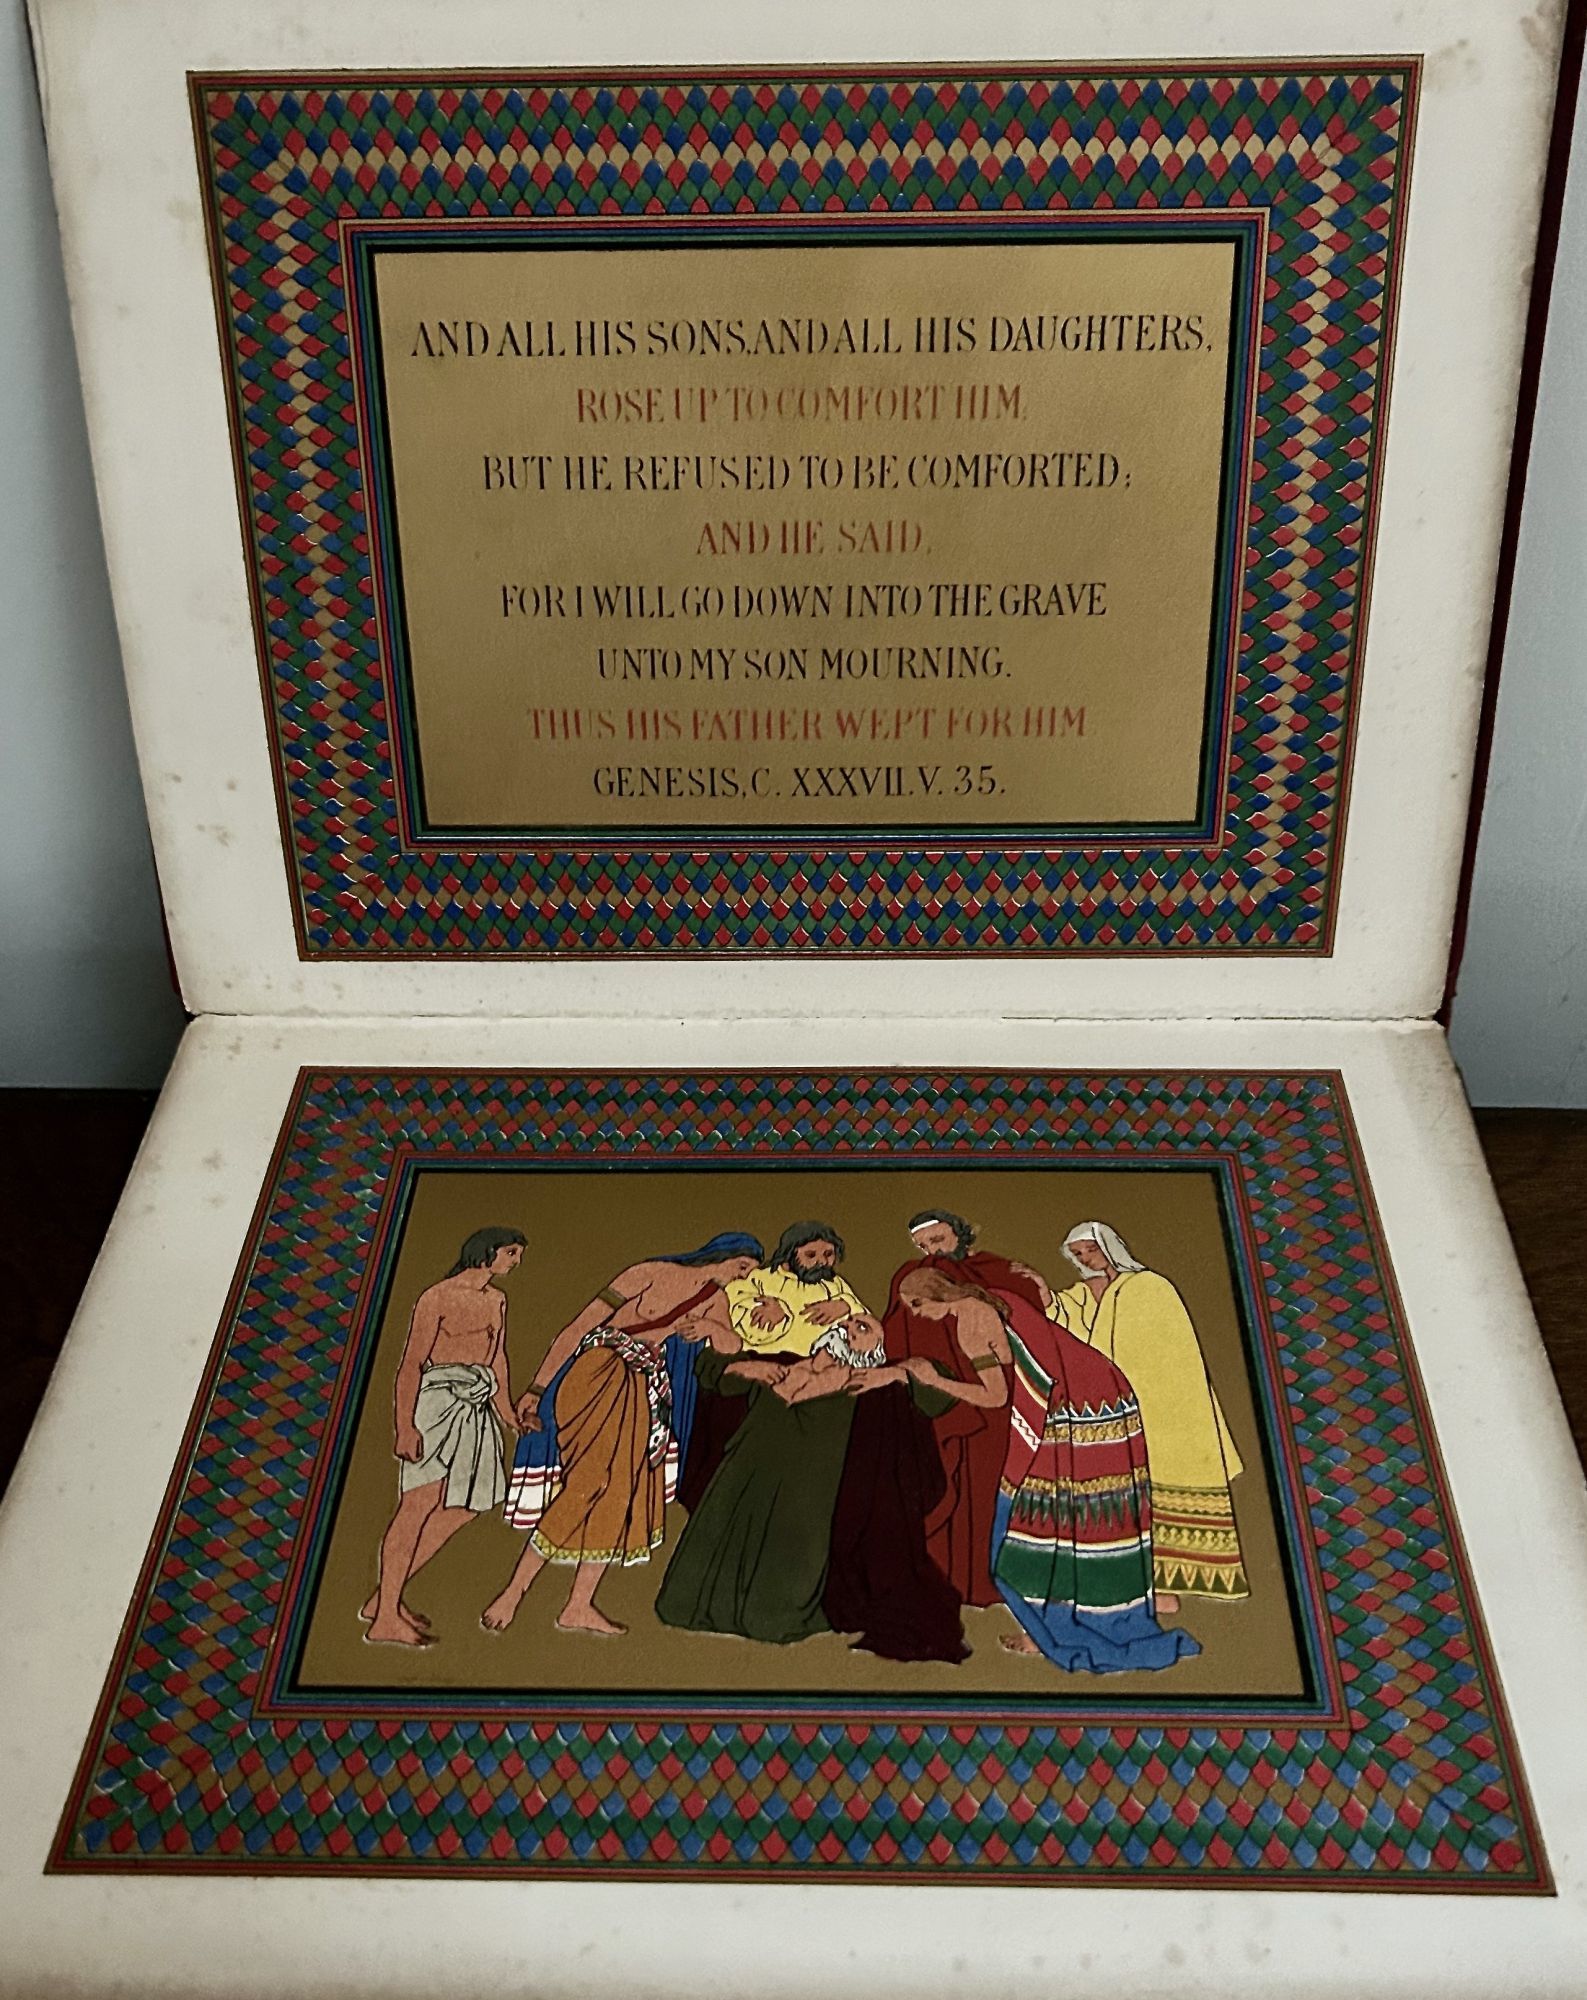 AND ALL HIS SONS, AND ALL HIS DAUGHTERS,
ROSE UP TO COMFORT HIM,
BUT HE REFUSED TO BE COMFORTED;
AND HE SAID,
FOR I WILL GO DOWN INTO THE GRAVE
UNTO MY SON MOURNING.
THUS HIS FATHER WEPT FOR HIM
GENESIS, C. XXXVII. V. 35.